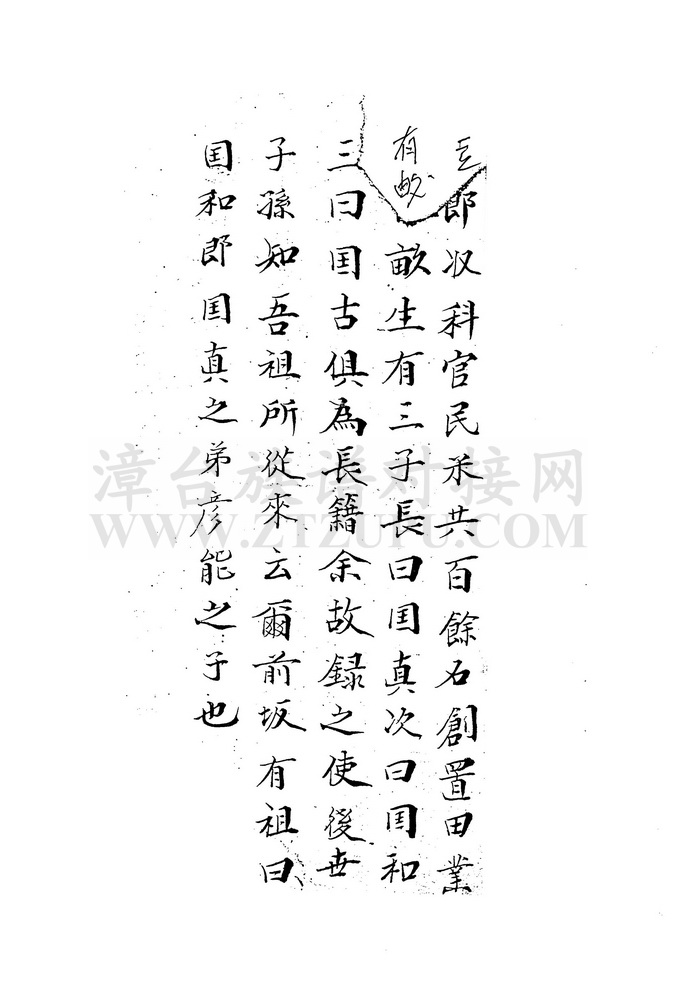 郎収科官民米共百餘石創置田業
有畝畝生有三子長曰囯真次曰囯和
三曰囯古俱為長籍余故録之使後世
子孫知吾祖所從來云爾前坂有祖曰
囯和郎囯真之弟彦能之子也
漳台族谱对接网
WWW.ZTZUPU.COM